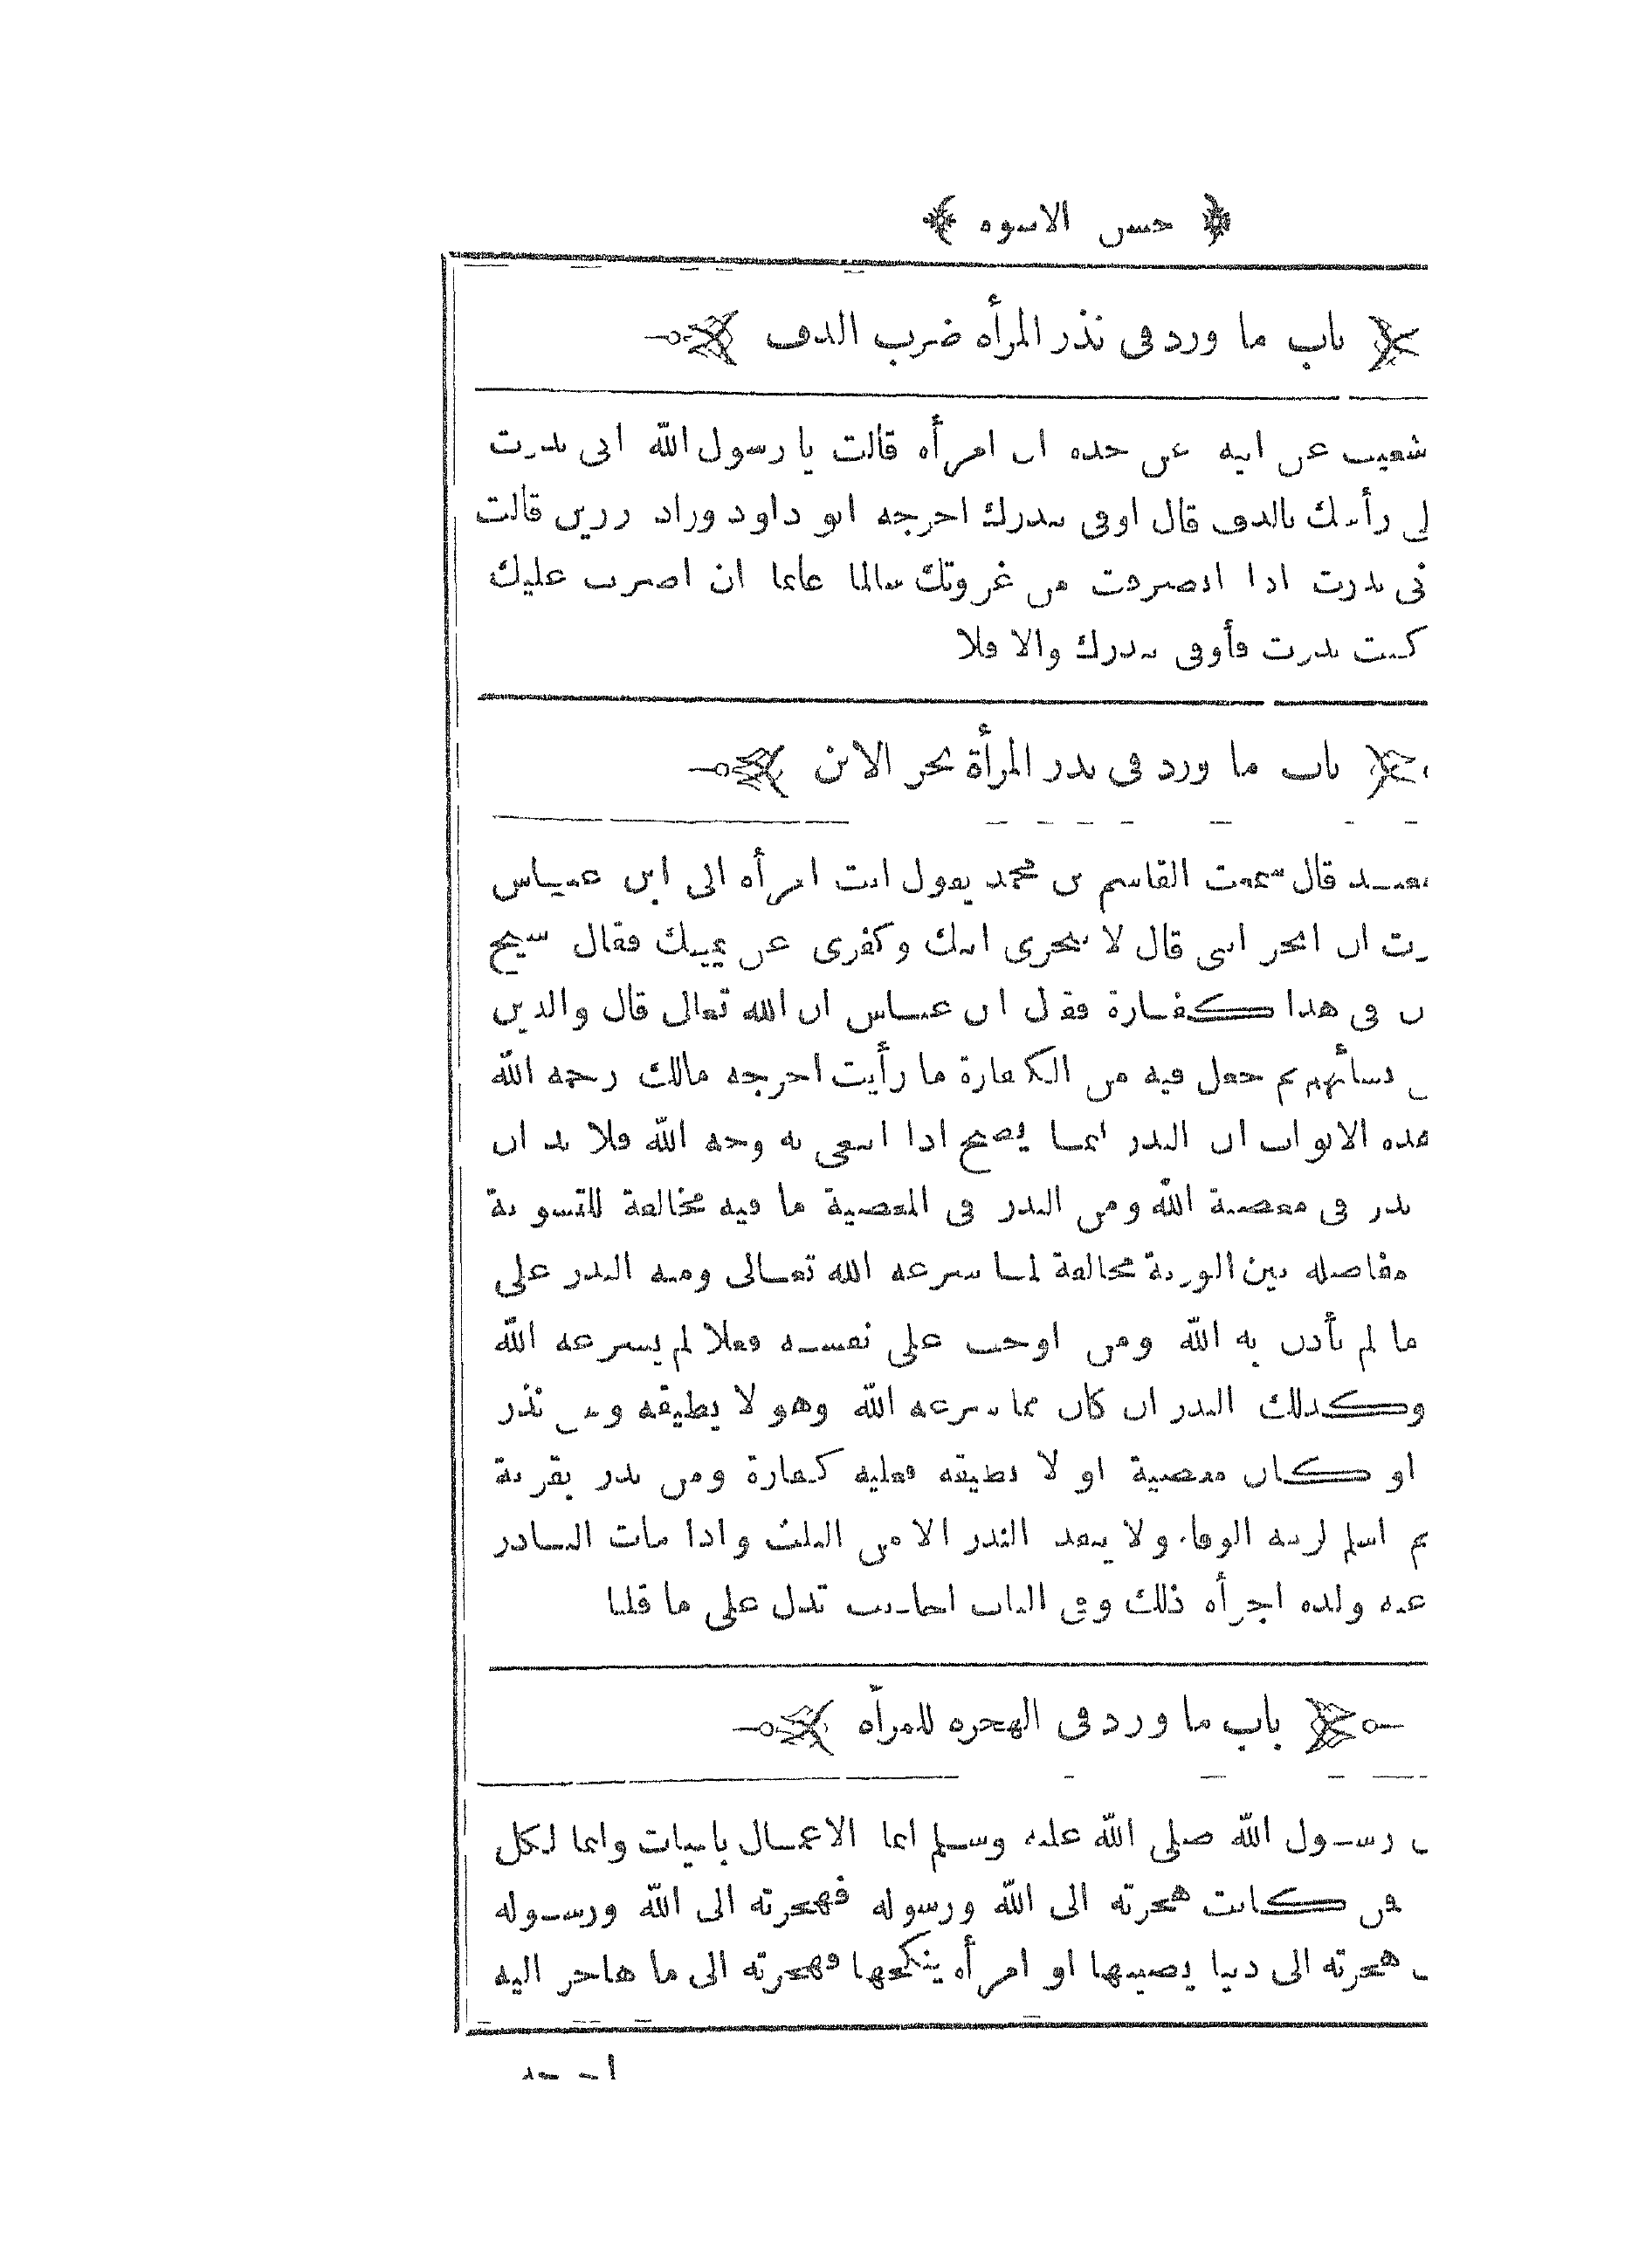 حسن الاسوه
باب ما ورد فى نذر المرأه ضرب الدف
شعيب عن ابيه عن جده ان امرأه قالت يا رسول الله انى نذرت
رأسك بالدف قال اوفى بنذرك اخرجه ابو داود وزاد رزين قالت
نذرت اذا انصرفت من غزوتك سالما غانما ان اضرب عليك
كنت نذرت فأوفى بنذرك والا فلا
باب ما ورد فى نذر المرأة نحر الابن
قال سمعت القاسم بن محمد يقول اتت امرأه الى ابن عباس
ان انحر ابنى قال لا تنحرى ابنك وكفرى عن يمينك فقال شيخ
فى هذا كفارة فقال ابن عباس ان الله تعالى قال والذين
نسائهم ثم جعل فيه من الكفارة ما رأيت اخرجه مالك رحمه الله
هذه الابواب ان النذر انما يصح اذا ابتغى به وجه الله فلا بد ان
نذر فى معصية الله ومن النذر فى المعصية ما فيه مخالفة للتسوية
مفاضله بين الورثة مخالفة لما شرعه الله تعالى ومنه النذر على
ما لم يأذن به الله ومن اوجب على نفسه فعلا لم يشرعه الله
وكذلك النذر ان كان مما شرعه الله وهو لا يطيقه ومن نذر
او كان معصية او لا يطيقه فعليه كفارة ومن نذر بقربة
ثم اسلم لزمه الوفاء ولا ينفذ النذر الا من الثلث واذا مات الناذر
عنه ولده اجزأه ذلك وفى الباب احاديث تدل على ما قلنا
باب ما ورد فى الهجره للمرأه
رسول الله صلى الله عليه وسلم انما الاعمال بانيات وانما لكل
فمن كانت هجرته الى الله ورسوله فهجرته الى الله ورسوله
هجرته الى دنيا يصيبها او امرأه ينكحها فهجرته الى ما هاجر اليه